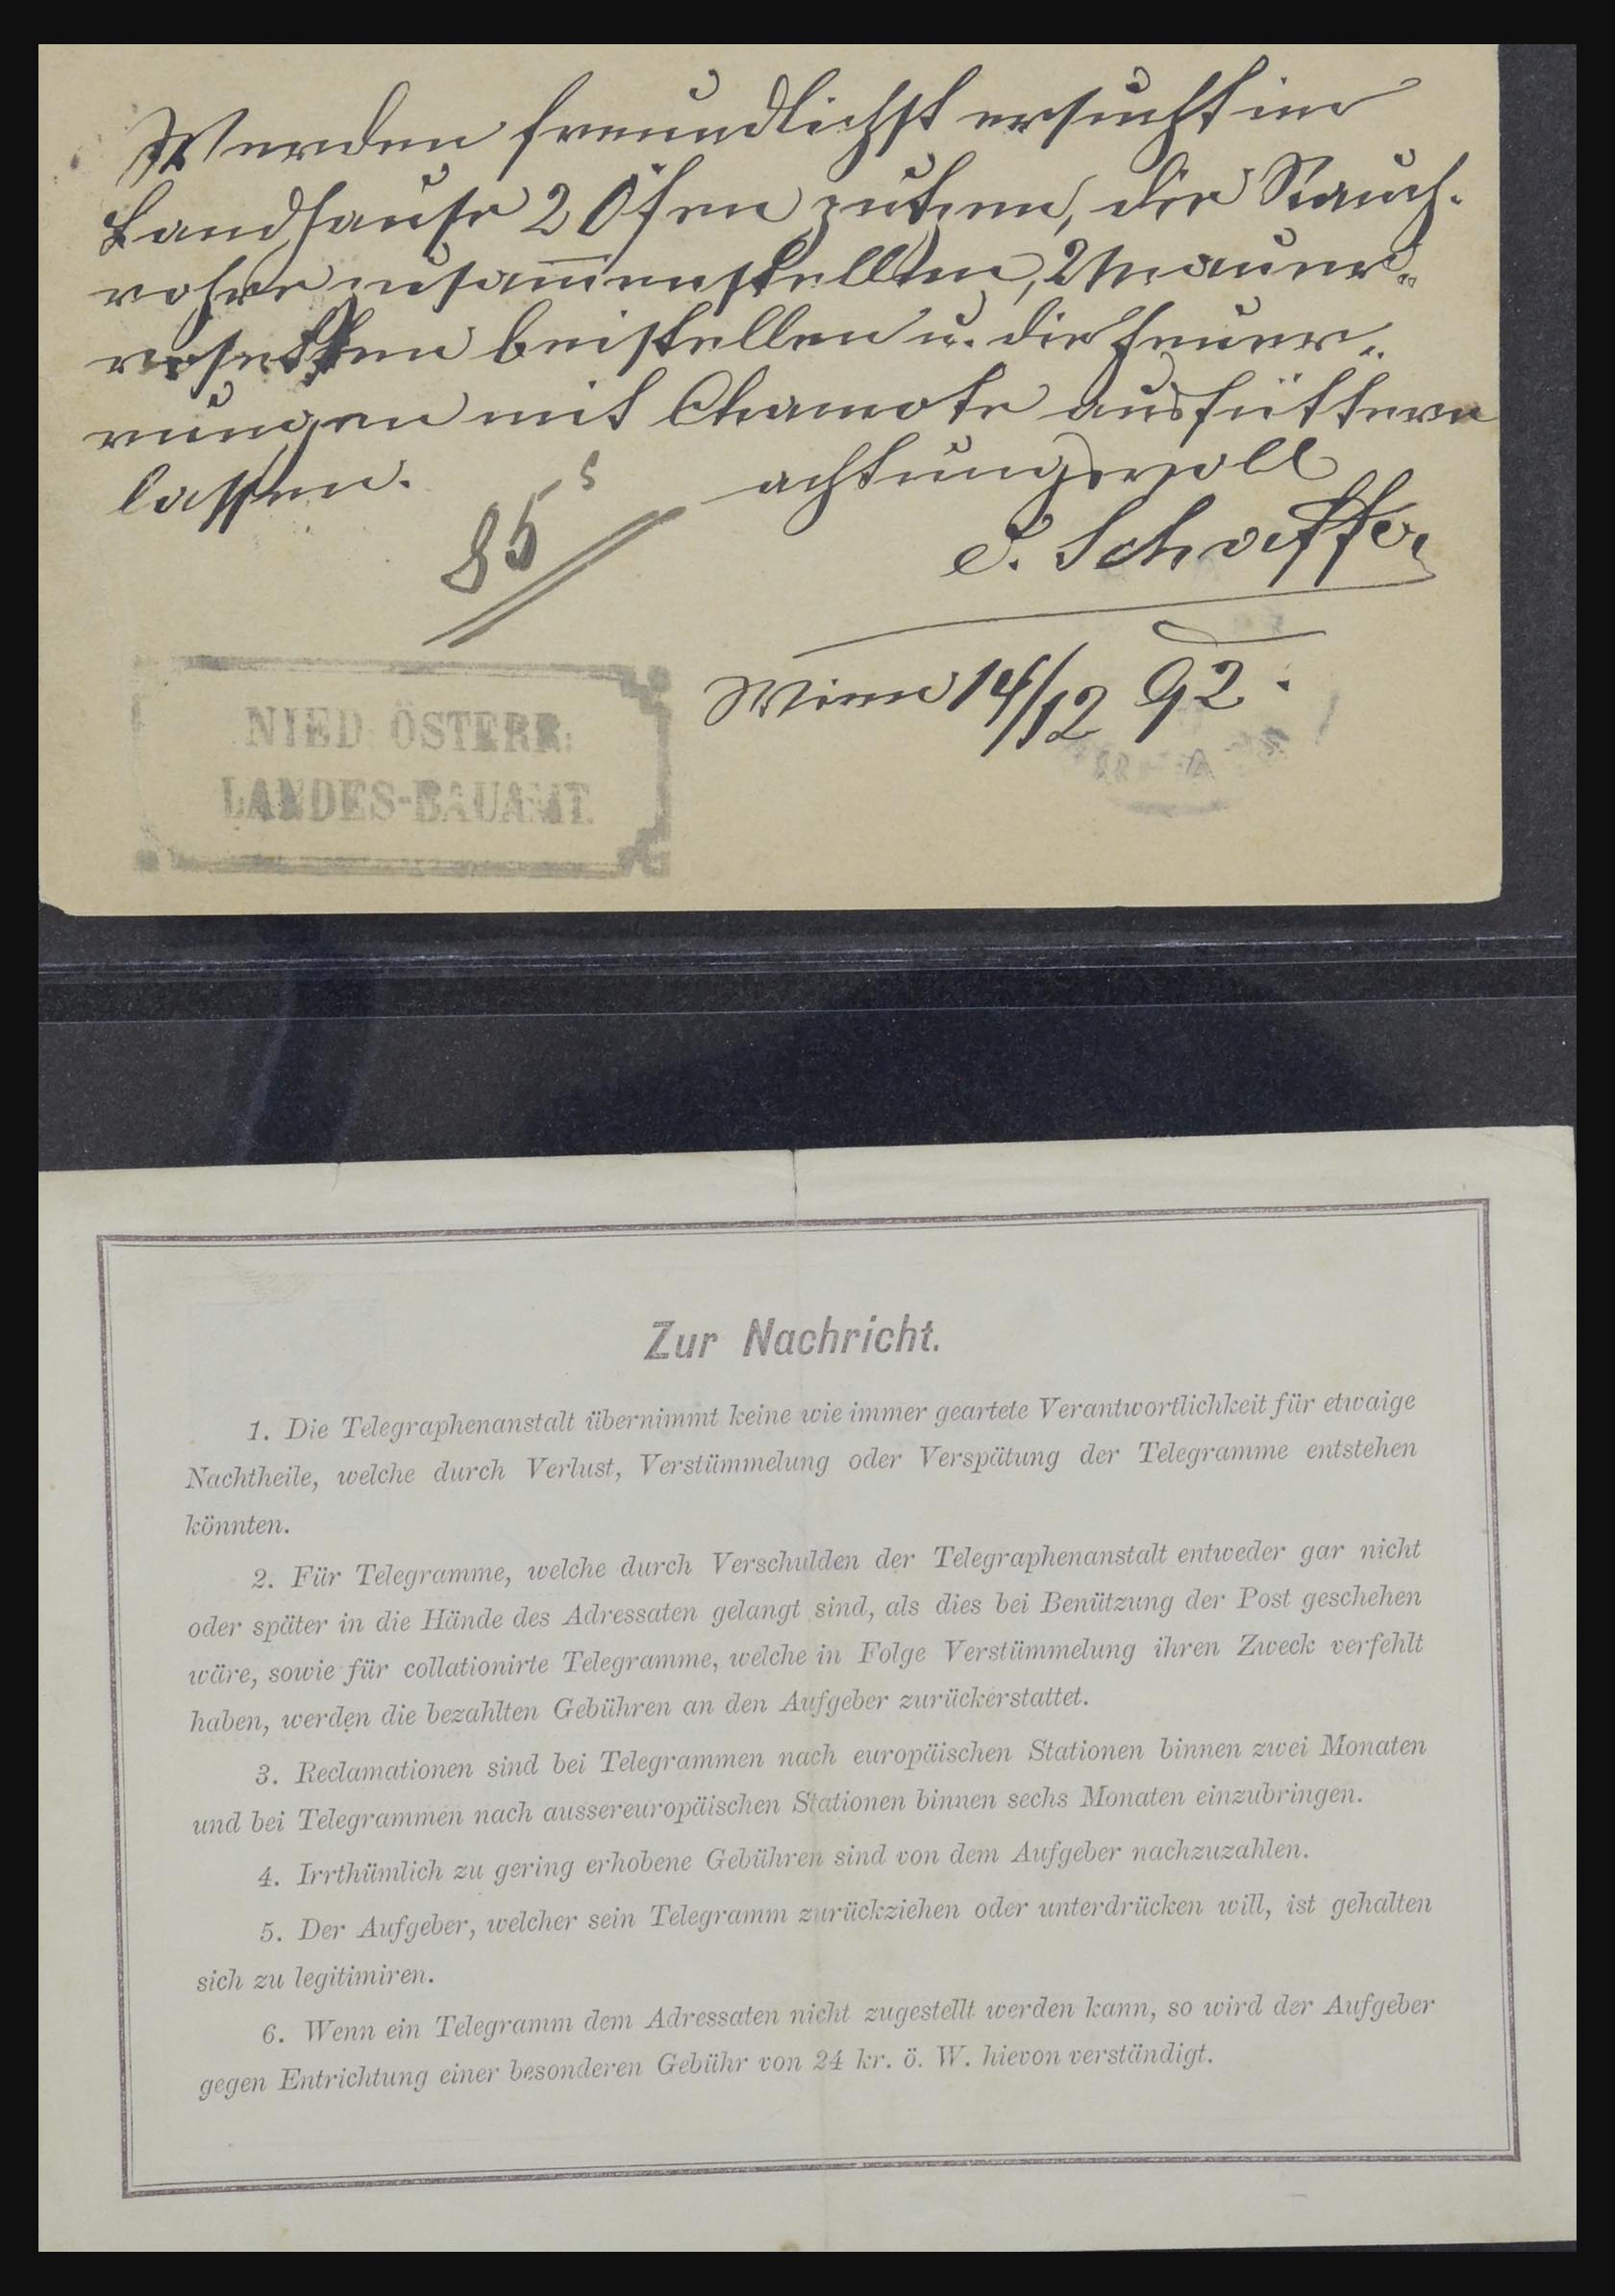 Werden freundlichst ersucht im
Landhause 2 Öfen putzen, die Rauch-
rohre zusam̅enstellen, 2 Mauer-
rosetten beistellen u. die Feuer-
rungen mit Chamote ausfüttern
lassen.
achtungsvoll
85 5
Schaffer
Wien 14/12 92.
NIED. ÖSTERR.
LANDES-BAUAMT.
Zur Nachricht.
1. Die Telegraphenanstalt übernimmt keine wie immer geartete Verantwortlichkeit für etwaige
Nachtheile, welche durch Verlust, Verstümmelung oder Verspätung der Telegramme entstehen
könnten.
2. Für Telegramme, welche durch Verschulden der Telegraphenanstalt entweder gar nicht
oder später in die Hände des Adressaten gelangt sind, als dies bei Benützung der Post geschehen
wäre, sowie für collationirte Telegramme, welche in Folge Verstümmelung ihren Zweck verfehlt
haben, werden die bezahlten Gebühren an den Aufgeber zurückerstattet.
3. Reclamationen sind bei Telegrammen nach europäischen Stationen binnen zwei Monaten
und bei Telegrammen nach aussereuropäischen Stationen binnen sechs Monaten einzubringen.
4. Irrthümlich zu gering erhobene Gebühren sind von dem Aufgeber nachzuzahlen.
5. Der Aufgeber, welcher sein Telegramm zurückziehen oder unterdrücken will, ist gehalten
sich zu legitimiren.
6. Wenn ein Telegramm dem Adressaten nicht zugestellt werden kann, so wird der Aufgeber
gegen Entrichtung einer besonderen Gebühr von 24 kr. ö. W. hievon verständigt.